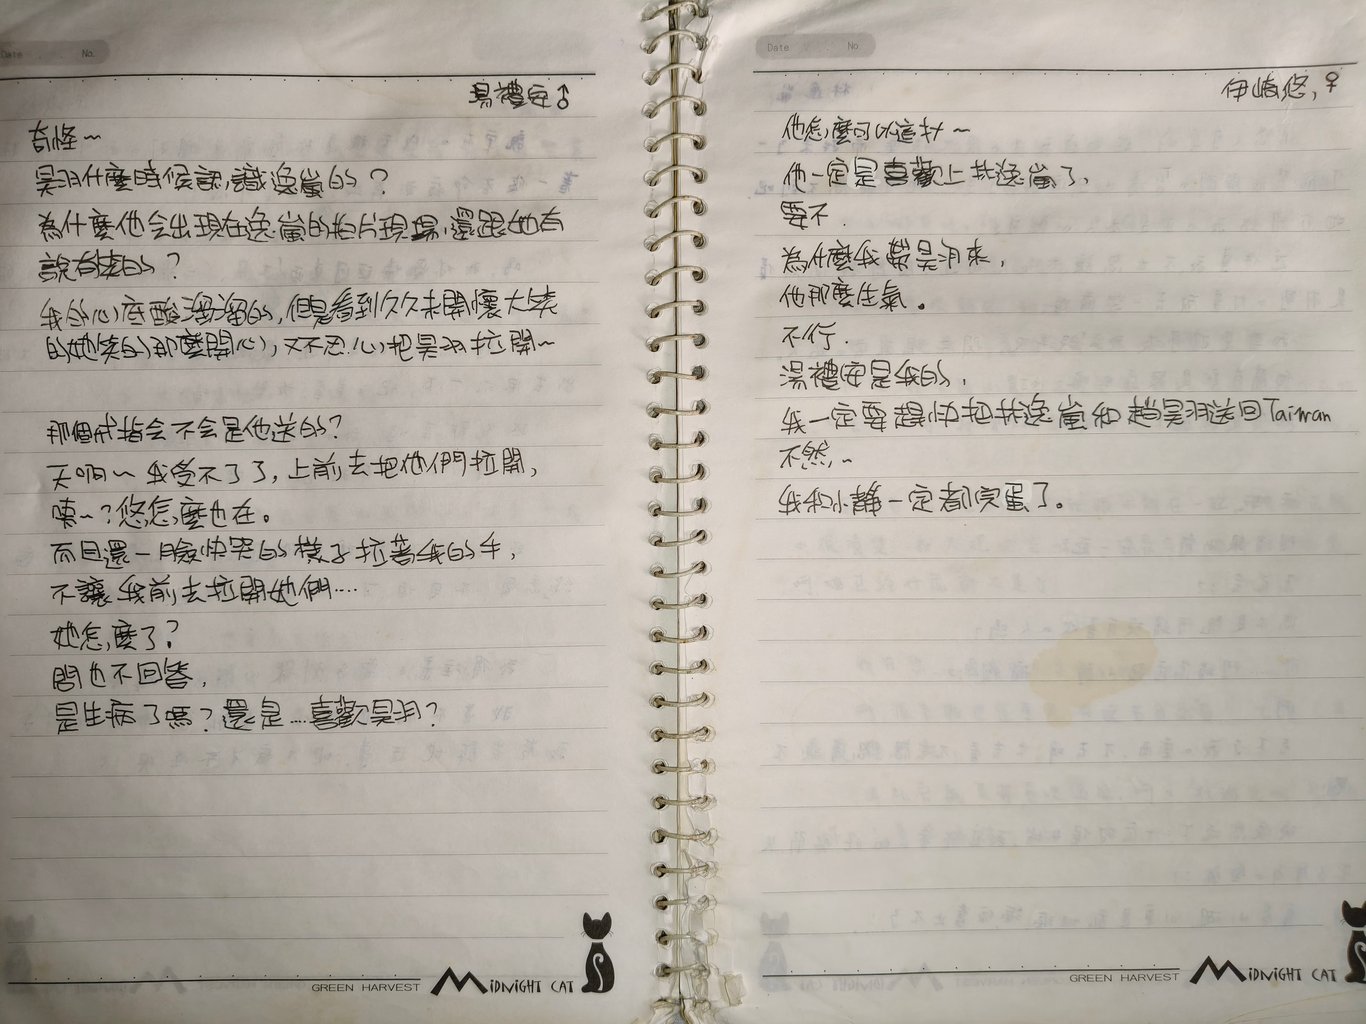 Date . . No.
湯禮安♂
奇怪~
昊羽什麼時候認識逸嵐的？
為什麼他会出現在逸嵐的拍片現場,還跟她有
說有笑的？
我的心底酸溜溜的,但是看到久久未開懷大笑
的她笑的那麼開心,又不忍心把昊羽拉開~
那個戒指会不会是他送的？
天啊~我受不了了,上前去把他們拉開,
咦~？悠怎麼也在。
而且還一臉快哭的樣子拉著我的手,
不讓我前去拉開她們....
她怎麼了？
問也不回答,
是生病了嗎？還是....喜歡昊羽？
GREEN HARVEST MIDNIGHT CAT
Date / . No
伊崎悠,♀
他怎麼可以這打~
他一定是喜歡上共逸嵐了,
要不.
為什麼我帶昊羽來,
他那麼生氣。
不行.
湯禮安是我的,
我一定要趕快把共逸嵐和趙昊羽送回Taiwan
不然,~
我和小靜一定都完蛋了。
GREEN HARVEST MIDNIGHT CAT